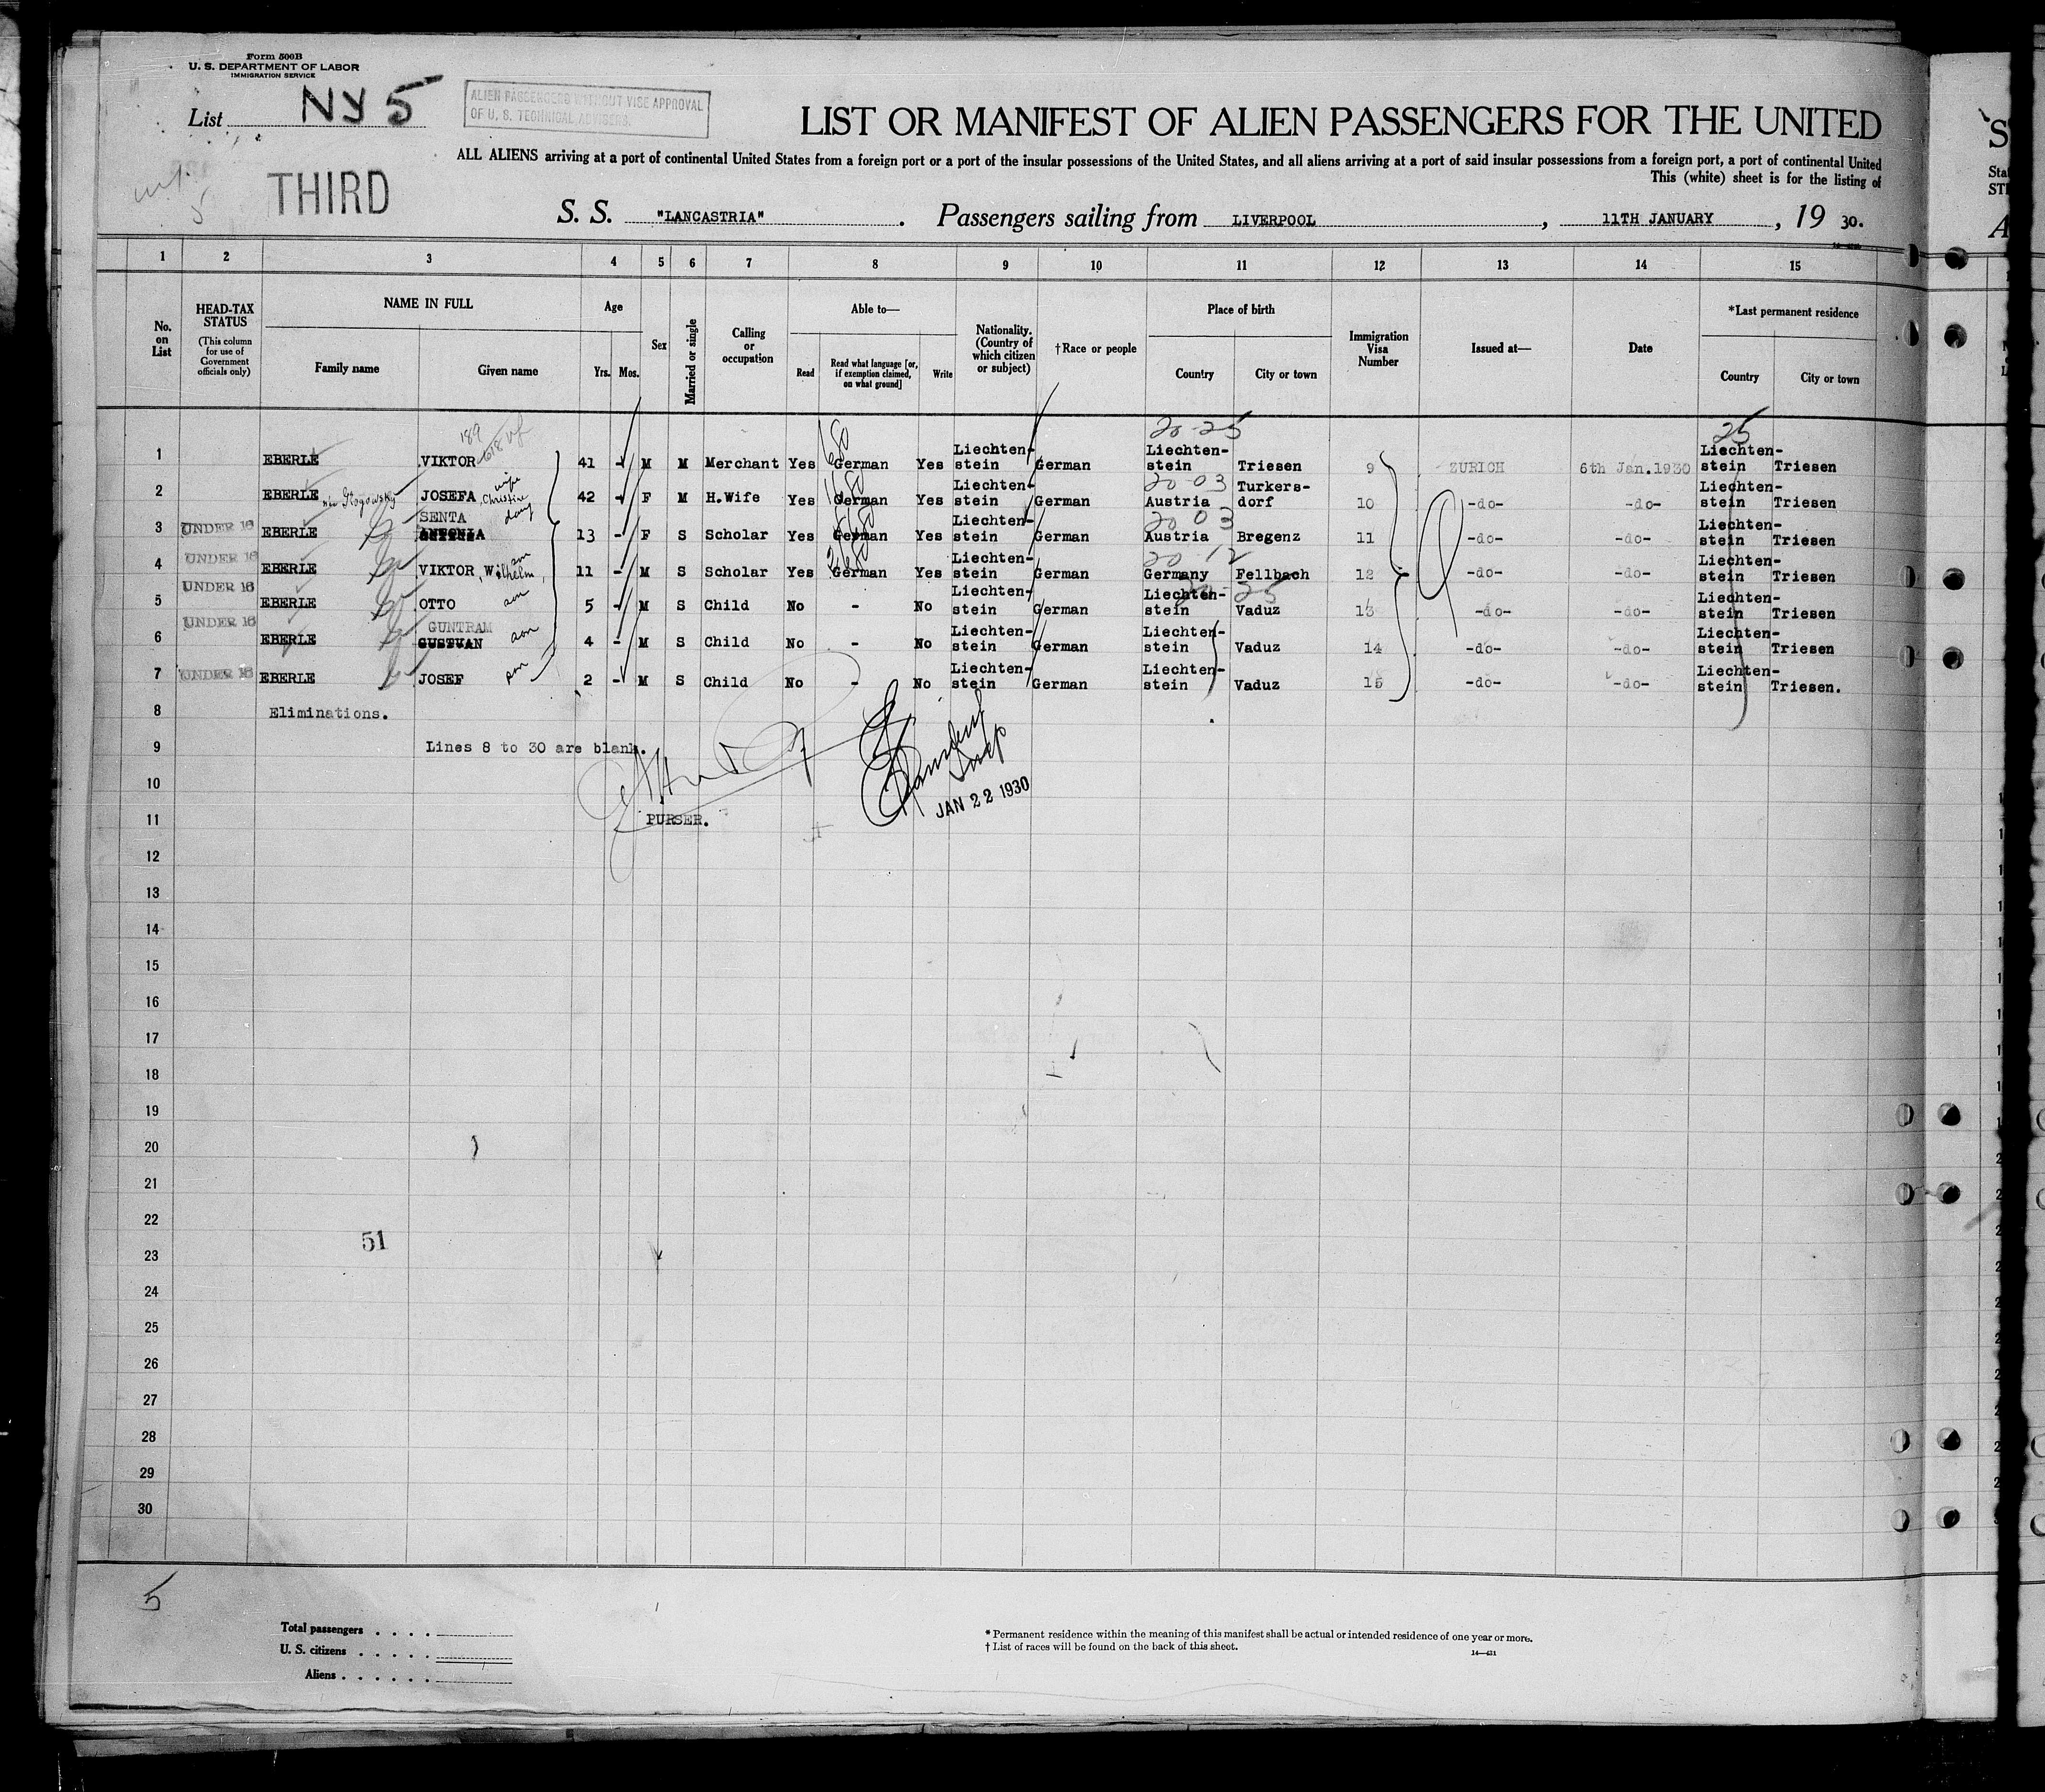 Form 500B
U. S. DEPARTMENT OF LABOR
IMMIGRATION SERVICE
List NY 5
ALIEN PASSENGERS WITHOUT VISE APPROVAL
OF U. S. TECHNICAL ADVISERS.
LIST OR MANIFEST OF ALIEN PASSENGERS FOR THE UNITED
ALL ALIENS arriving at a port of continental United States from a foreign port or a port of the insular possessions of the United States, and all aliens arriving at a port of said insular possessions from a foreign port, a port of continental United
This (white) sheet is for the listing of
THIRD
5
S. S. "LANCASTRIA". Passengers sailing from LIVERPOOL, 11TH JANUARY, 19 30.
1 2 3 4 5 6 7 8 9 10 11 12 13 14 15
No. on List
HEAD-TAX STATUS
(This column for use of Government officials only)
NAME IN FULL
Family name
Given name
Age
Yrs. Mos.
Sex
Married or single
Calling or occupation
Able to—
Read
Read what language [or, if exemption claimed, on what ground]
Write
Nationality. (Country of which citizen or subject)
†Race or people
Place of birth
Country
City or town
Immigration Visa Number
Issued at—
Date
*Last permanent residence
Country
City or town
189
20-25
25
1 EBERLE VIKTOR 41 - M M Merchant Yes German Yes Liechten-stein German Liechten-stein Triesen 9 ZURICH 6th Jan.1930 Liechten-stein Triesen
20 03
2 EBERLE JOSEFA, Christine wife 42 - F M H.Wife Yes German Yes Liechten-stein German Austria Turkers-dorf 10 -do- -do- Liechten-stein Triesen
20 03
3 UNDER 16 EBERLE SENTA ANTONIA daug 13 - F S Scholar Yes German Yes Liechten-stein German Austria Bregenz 11 -do- -do- Liechten-stein Triesen
20-12
4 UNDER 16 EBERLE VIKTOR, Wilhelm, son 11 - M S Scholar Yes German Yes Liechten-stein German Germany Fellbach 12 -do- -do- Liechten-stein Triesen
25
5 UNDER 16 EBERLE OTTO son 5 - M S Child No - No Liechten-stein German Liechten-stein Vaduz 13 -do- -do- Liechten-stein Triesen
6 UNDER 16 EBERLE GUNTRAM son 4 - M S Child No - No Liechten-stein German Liechten-stein Vaduz 14 -do- -do- Liechten-stein Triesen
7 UNDER 16 EBERLE JOSEF son 2 - M S Child No - No Liechten-stein German Liechten-stein Vaduz 15 -do- -do- Liechten-stein Triesen.
8 Eliminations.
9 Lines 8 to 30 are blank.
10
Insp
JAN 22 1930
11 PURSER.
12
13
14
15
16
17
18
19
20
21
22
51
23
24
25
26
27
28
29
30
5
Total passengers . . . .
U. S. citizens . . . . .
Aliens . . . . . .
* Permanent residence within the meaning of this manifest shall be actual or intended residence of one year or more.
† List of races will be found on the back of this sheet.
14—431